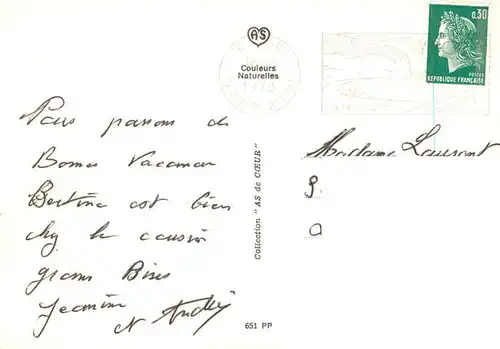 AS
Couleurs
Naturelles
0,30
POSTES
REPUBLIQUE FRANÇAISE
Nous passons de
Bonnes Vacances
Bertine est bien
chez le cousin
grosses Bises
Jeannine
et André
Collection "AS de CŒUR"
651 PP
Madame Laurent